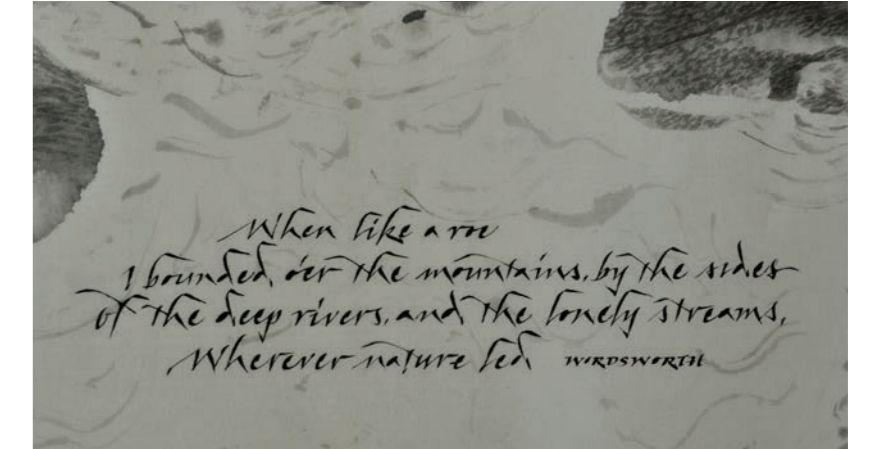 When like a roe
I bounded o'er the mountains, by the sides
of the deep rivers, and the lonely streams,
Wherever nature led WORDSWORTH